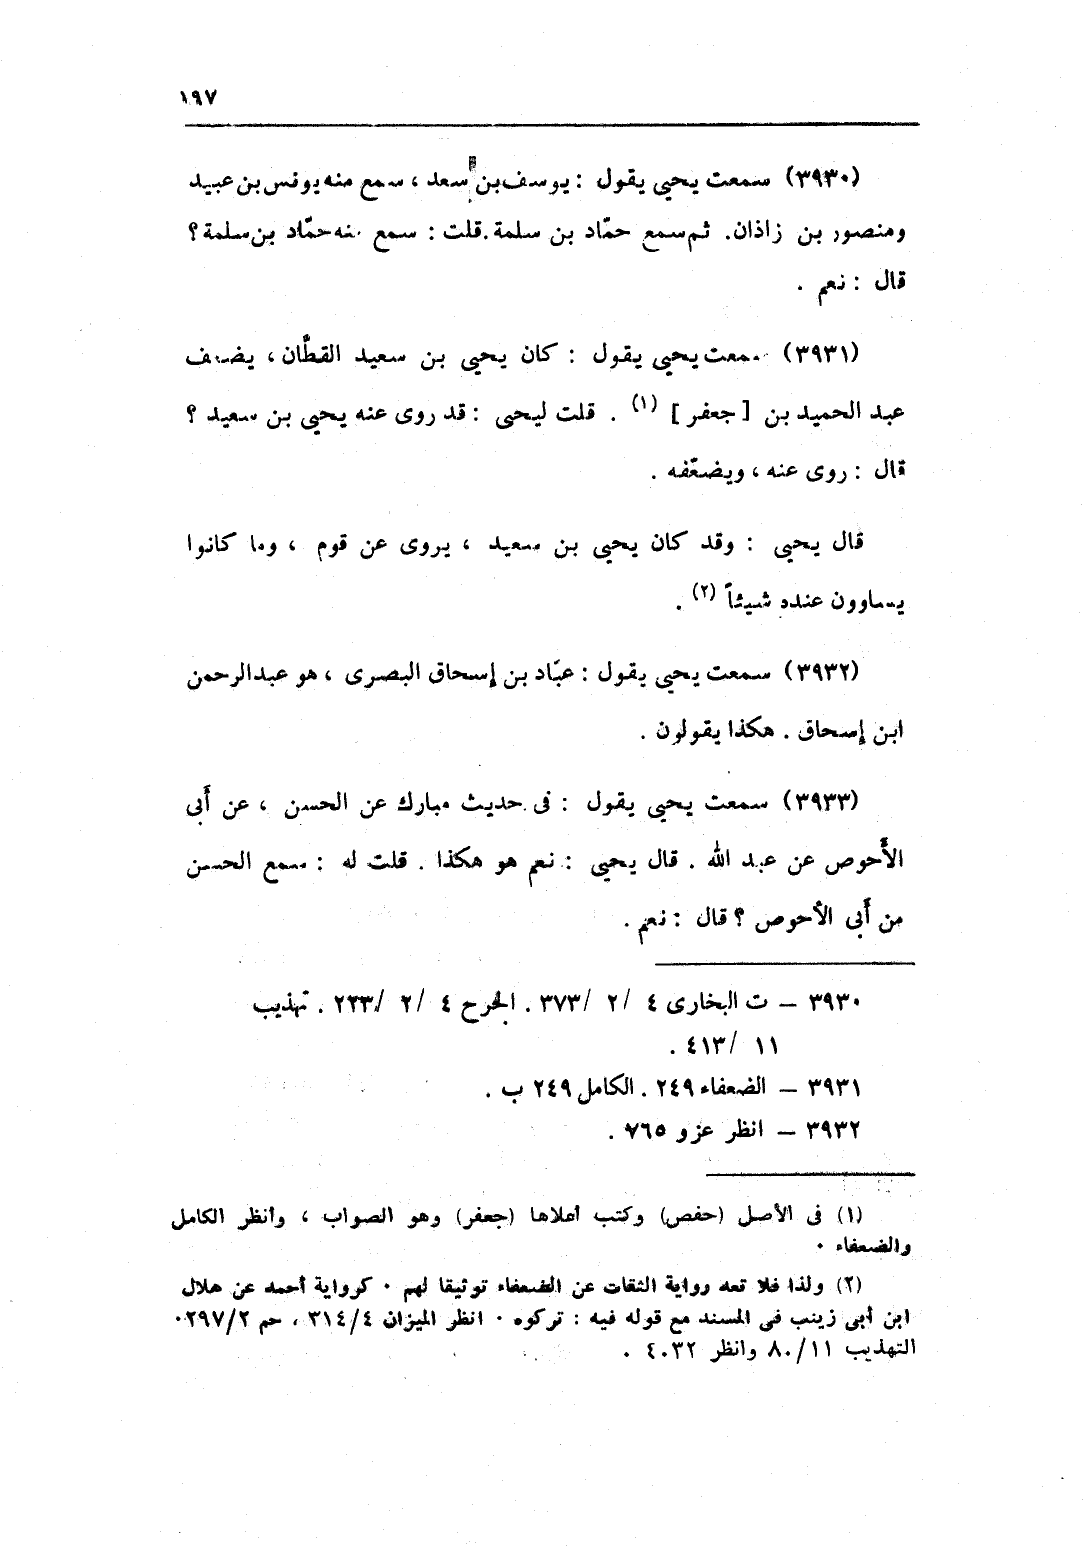 ١٩٧
(٣٩٣٠) سمعت يحيى يقول : يوسف بن سعد ، سمع منه يونس بن عبيد
ومنصور بن زاذان. ثم سمع حمّاد بن سلمة. قلت : سمع منه حمّاد بن سلمة ؟
قال : نعم .
(٣٩٣١) سمعت يحيى يقول : كان يحيى بن سعيد القطَّان ، يضعف
عبد الحميد بن [ جعفر ] (١) . قلت ليحيى : قد روى عنه يحيى بن سعيد ؟
قال : روى عنه ، ويضعّفه .
قال يحيى : وقد كان يحيى بن سعيد ، يروى عن قوم ، وما كانوا
يساوون عنده شيئاً (٢) .
(٣٩٣٢) سمعت يحيى يقول : عبّاد بن إسحاق البصرى ، هو عبدالرحمن
ابن إسحاق . هكذا يقولون .
(٣٩٣٣) سمعت يحيى يقول : فى حديث مبارك عن الحسن ، عن أَبى
الأَحوص عن عبد الله . قال يحيى : نعم هو هكذا . قلت له : سمع الحسن
من أَبى الأحوص ؟ قال : نعم .
٣٩٣٠ – ت البخارى ٤ /٢ /٣٧٣ . الجرح ٤ /٢ /٢٢٣ . تهذيب
١١ /٤١٣ .
٣٩٣١ – الضعفاء ٢٤٩ . الكامل ٢٤٩ ب .
٣٩٣٢ – انظر عزو ٧٦٥ .
(١) فى الأصل (حفص) وكتب أعلاها (جعفر) وهو الصواب ، وأنظر الكامل
والضعفاء ٠
(٢) ولذا فلا تعد رواية الثقات عن الضعفاء توثيقا لهم ٠ كرواية أحمد عن هلال
ابن أبى زينب فى المسند مع قوله فيه : تركوه ٠ انظر الميزان ٣١٤/٤ ، حم ٢٩٧/٢٠
التهذيب ٨٠/١١ وانظر ٤٠٣٢ .